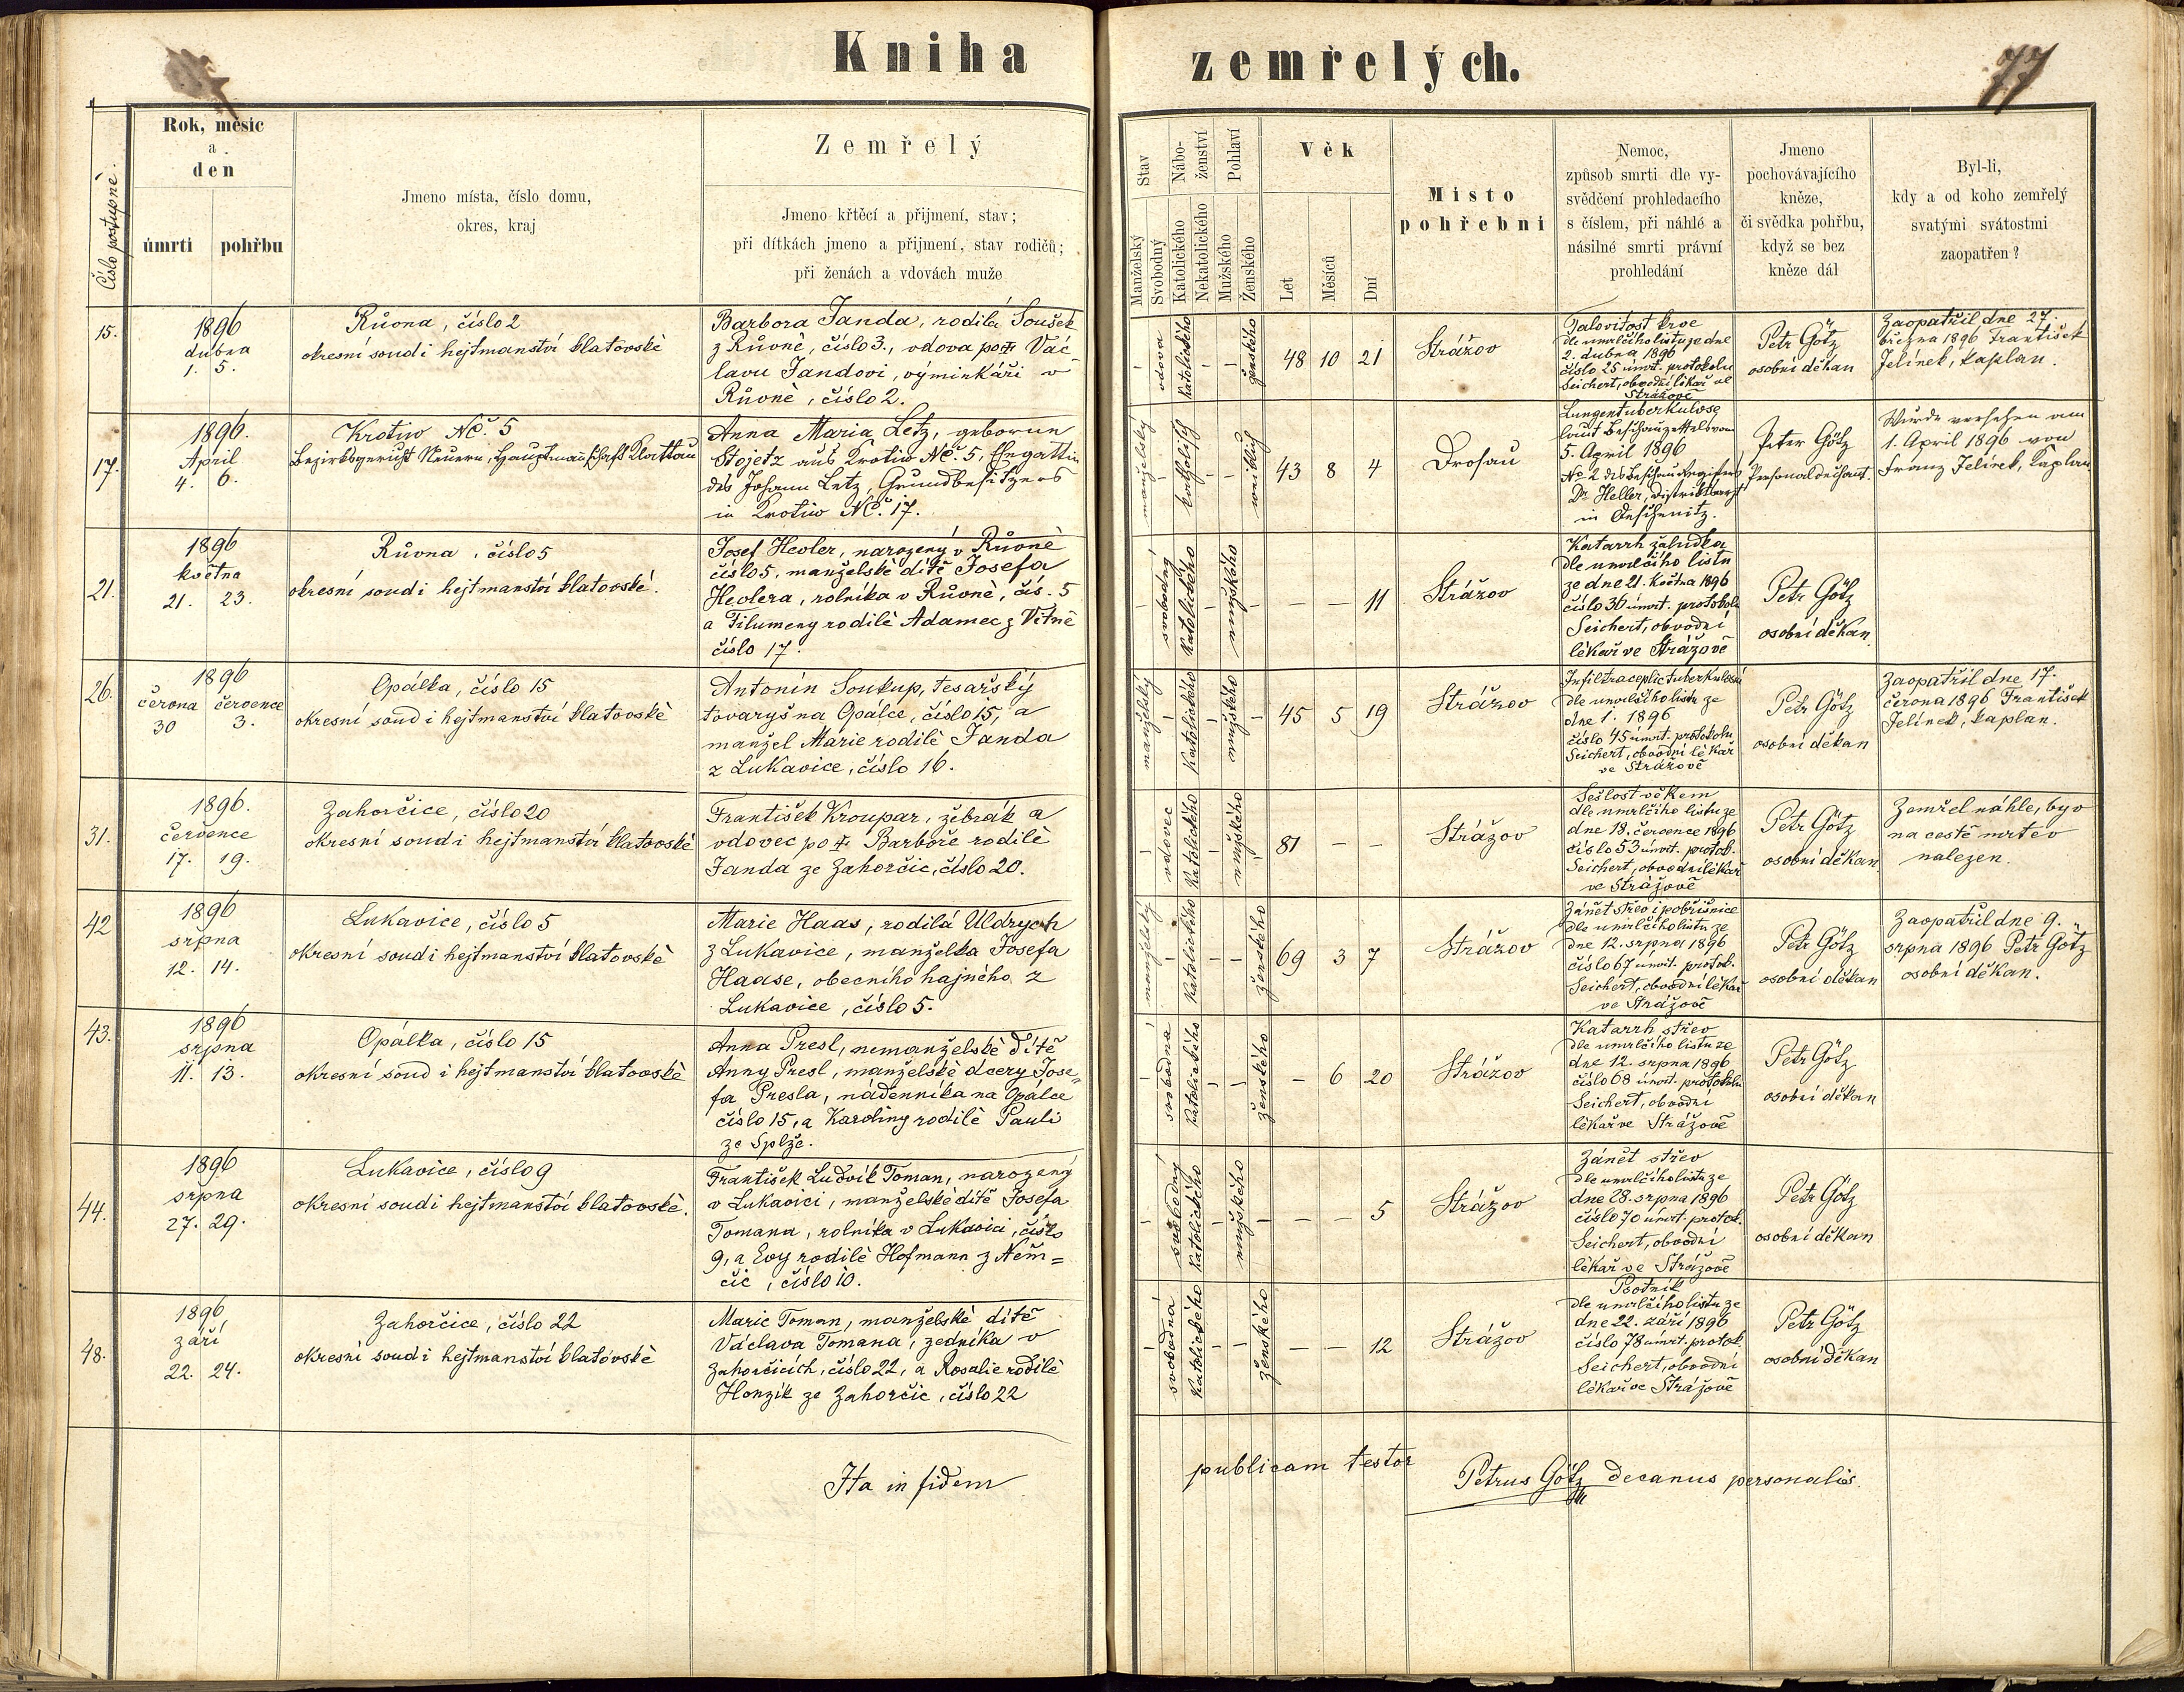 Kniha zemřelých.
77
Číslo postupné
Rok, měsíc
a
den
úmrtí
pohřbu
Jmeno místa, číslo domu,
okres, kraj
Zemřelý
Jmeno křtěcí a přijmení, stav;
při dítkách jmeno a přijmení, stav rodičů;
při ženách a vdovách muže
Stav
Manželský
Svobodný
Nábo-
ženství
Katolického
Nekatolického
Pohlaví
Mužského
Ženského
Věk
Let
Měsíců
Dní
Místo
pohřební
Nemoc,
způsob smrti dle vy-
svědčení prohledacího
s číslem, při náhlé a
násilné smrti právní
prohledání
Jmeno
pochovávajícího
kněze,
či svědka pohřbu,
když se bez
kněze dál
Byl-li,
kdy a od koho zemřelý
svatými svátostmi
zaopatřen?
15.
1896
dubna
1. 5.
Růvna, číslo 2
okresní soud i hejtmanství klatovské
Barbora Janda, rodilá Soušek
z Růvně, číslo 3., vdova po ✝ Vác-
lavu Jandovi, výminkáři v
Růvně, číslo 2.
-
vdova
katolického
-
-
ženského
48 10 21
Strážov
Jalovitost krve
dle umrlčího listu ze dne
2. dubna 1896
číslo 25 úmrt. protokolu
Seichert, obvodní lékař ve
Strážově
Petr Götz
osobní děkan
Zaopatřil dne 27.
března 1896 František
Jelínek, kaplan.
17.
1896.
April
4. 6.
Krotiw NČ. 5
Bezirksgericht Neuern, Hauptmannschaft Klattau
Anna Maria Letz, geborene
Stojetz aus Krotiw NČ. 5, Ehegattin
des Johann Letz, Grundbesitzers
in Krotiw NČ. 17.
manželský
-
katholisch
-
-
weiblich
43 8 4
Drosau
Lungentuberkulose
laut Beschauzettels vom
5. April 1896
No 2 des Beschauregisters
Dr Heller, Distriktsarzt
in Deschenitz.
Peter Götz
Personaldechant.
Wurde versehen am
1. April 1896 von
Franz Jelínek, Kaplan
21.
1896
května
21. 23.
Růvna, číslo 5
okresní soud i hejtmanství klatovské.
Josef Hevler, narozený v Růvně
číslo 5, manželské dítě Josefa
Hevlera, rolníka v Růvně, čís. 5
a Filumeny rodilé Adamec z Vítně
číslo 17.
-
svobodný
katolického
-
mužského
-
- - 11
Strážov
Katarrh žaludka
dle umrlčího listu
ze dne 21. května 1896
číslo 36 úmrt. protokolu
Seichert, obvodní
lékař ve Strážově
Petr Götz
osobní děkan
26.
1896
června července
30 3.
Opálka, číslo 15
okresní soud i hejtmanství klatovské
Antonín Soukup, tesařský
tovaryš na Opálce, číslo 15, a
manžel Marie rodilé Janda
z Lukavice, číslo 16.
manželský
-
katolického
-
mužského
-
45 5 19
Strážov
dle umrlčího listu ze
dne 1. 1896
číslo 45 úmrt. protokolu
Seichert, obvodní lékař
ve Strážově
Petr Götz
osobní děkan
Zaopatřil dne 17.
června 1896 František
Jelínek, kaplan.
31.
1896.
července
17. 19.
Zahorčice, číslo 20
okresní soud i hejtmanství klatovské
František Kroupar, žebrák a
vdovec po ✝ Barboře rodilé
Janda ze Zahorčic, číslo 20.
-
vdovec
katolického
-
mužského
-
81 - -
Strážov
Sešlost věkem
dle umrlčího listu ze
dne 18. července 1896
číslo 53 úmrt. protok.
Seichert, obvodní lékař
ve Strážově
Petr Götz
osobní děkan
Zemřel náhle, byv
na cestě mrtev
nalezen.
42
1896
srpna
12. 14.
Lukavice, číslo 5
okresní soud i hejtmanství klatovské
Marie Haas, rodilá Uldrych
z Lukavice, manželka Josefa
Haase, obecního hajného z
Lukavice, číslo 5.
manželský
-
katolického
-
-
ženského
69 3 7
Strážov
Zánět střev i pobřišnice
dle umrlčího listu ze
dne 12. srpna 1896
číslo 67 úmrt. protok.
Seichert, obvodní lékař
ve Strážově
Petr Götz
osobní děkan
Zaopatřil dne 9.
srpna 1896 Petr Götz
osobní děkan.
43.
1896
srpna
11. 13.
Opálka, číslo 15
okresní soud i hejtmanství klatovské
Anna Presl, nemanželské dítě
Anny Presl, manželské dcery Jose-
fa Presla, nádenníka na Opálce
číslo 15, a Karoliny rodilé Pauli
ze Splže.
-
svobodná
katolického
-
-
ženského
- 6 20
Strážov
Katarrh střev
dle umrlčího listu ze
dne 12. srpna 1896
číslo 68 úmrt. protokolu
Seichert, obvodní
lékař ve Strážově
Petr Götz
osobní děkan
44.
1896
srpna
27. 29.
Lukavice, číslo 9
okresní soud i hejtmanství klatovské.
František Ludvík Toman, narozený
v Lukavici, manželské dítě Josefa
Tomana, rolníka v Lukavici, číslo
9, a Evy rodilé Hofmann z Něm=
čic, číslo 10.
-
svobodný
katolického
-
mužského
-
- - 5
Strážov
Zánět střev
dle umrlčího listu ze
dne 28. srpna 1896
číslo 70 úmrt. protok.
Seichert, obvodní
lékař ve Strážově
Petr Götz
osobní děkan
48.
1896
září
22. 24.
Zahorčice, číslo 22
okresní soud i hejtmanství klatovské
Marie Toman, manželské dítě
Václava Tomana, zedníka v
Zahorčicích, číslo 22, a Rosalie rodilé
Honzík ze Zahorčic, číslo 22
-
svobodná
katolického
-
-
ženského
- - 12
Strážov
Psotník
dle umrlčího listu ze
dne 22. září 1896
číslo 78 úmrt. protok.
Seichert, obvodní
lékař ve Strážově
Petr Götz
osobní děkan
Ita in fidem publicam testor
Petrus Götz decanus personalis